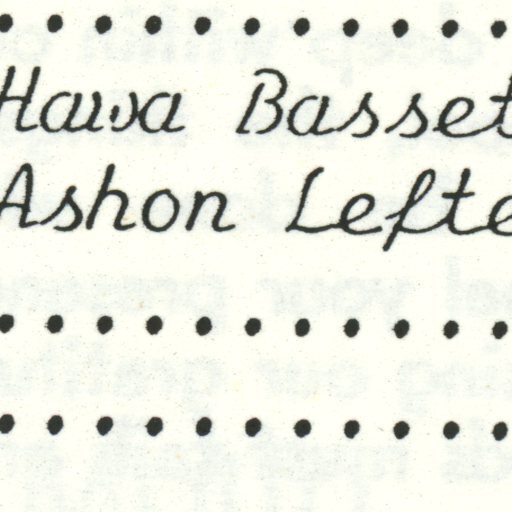 Hawa Basset
Ashon Lefte